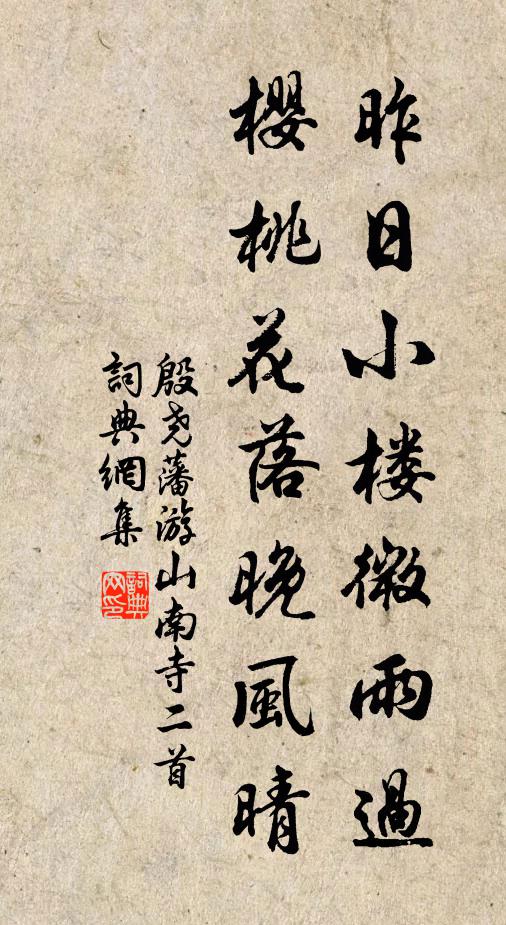 昨日小楼微雨過
櫻桃花落晚風晴
殷尧藩游山南寺二首
詞典網集
詞典
网印